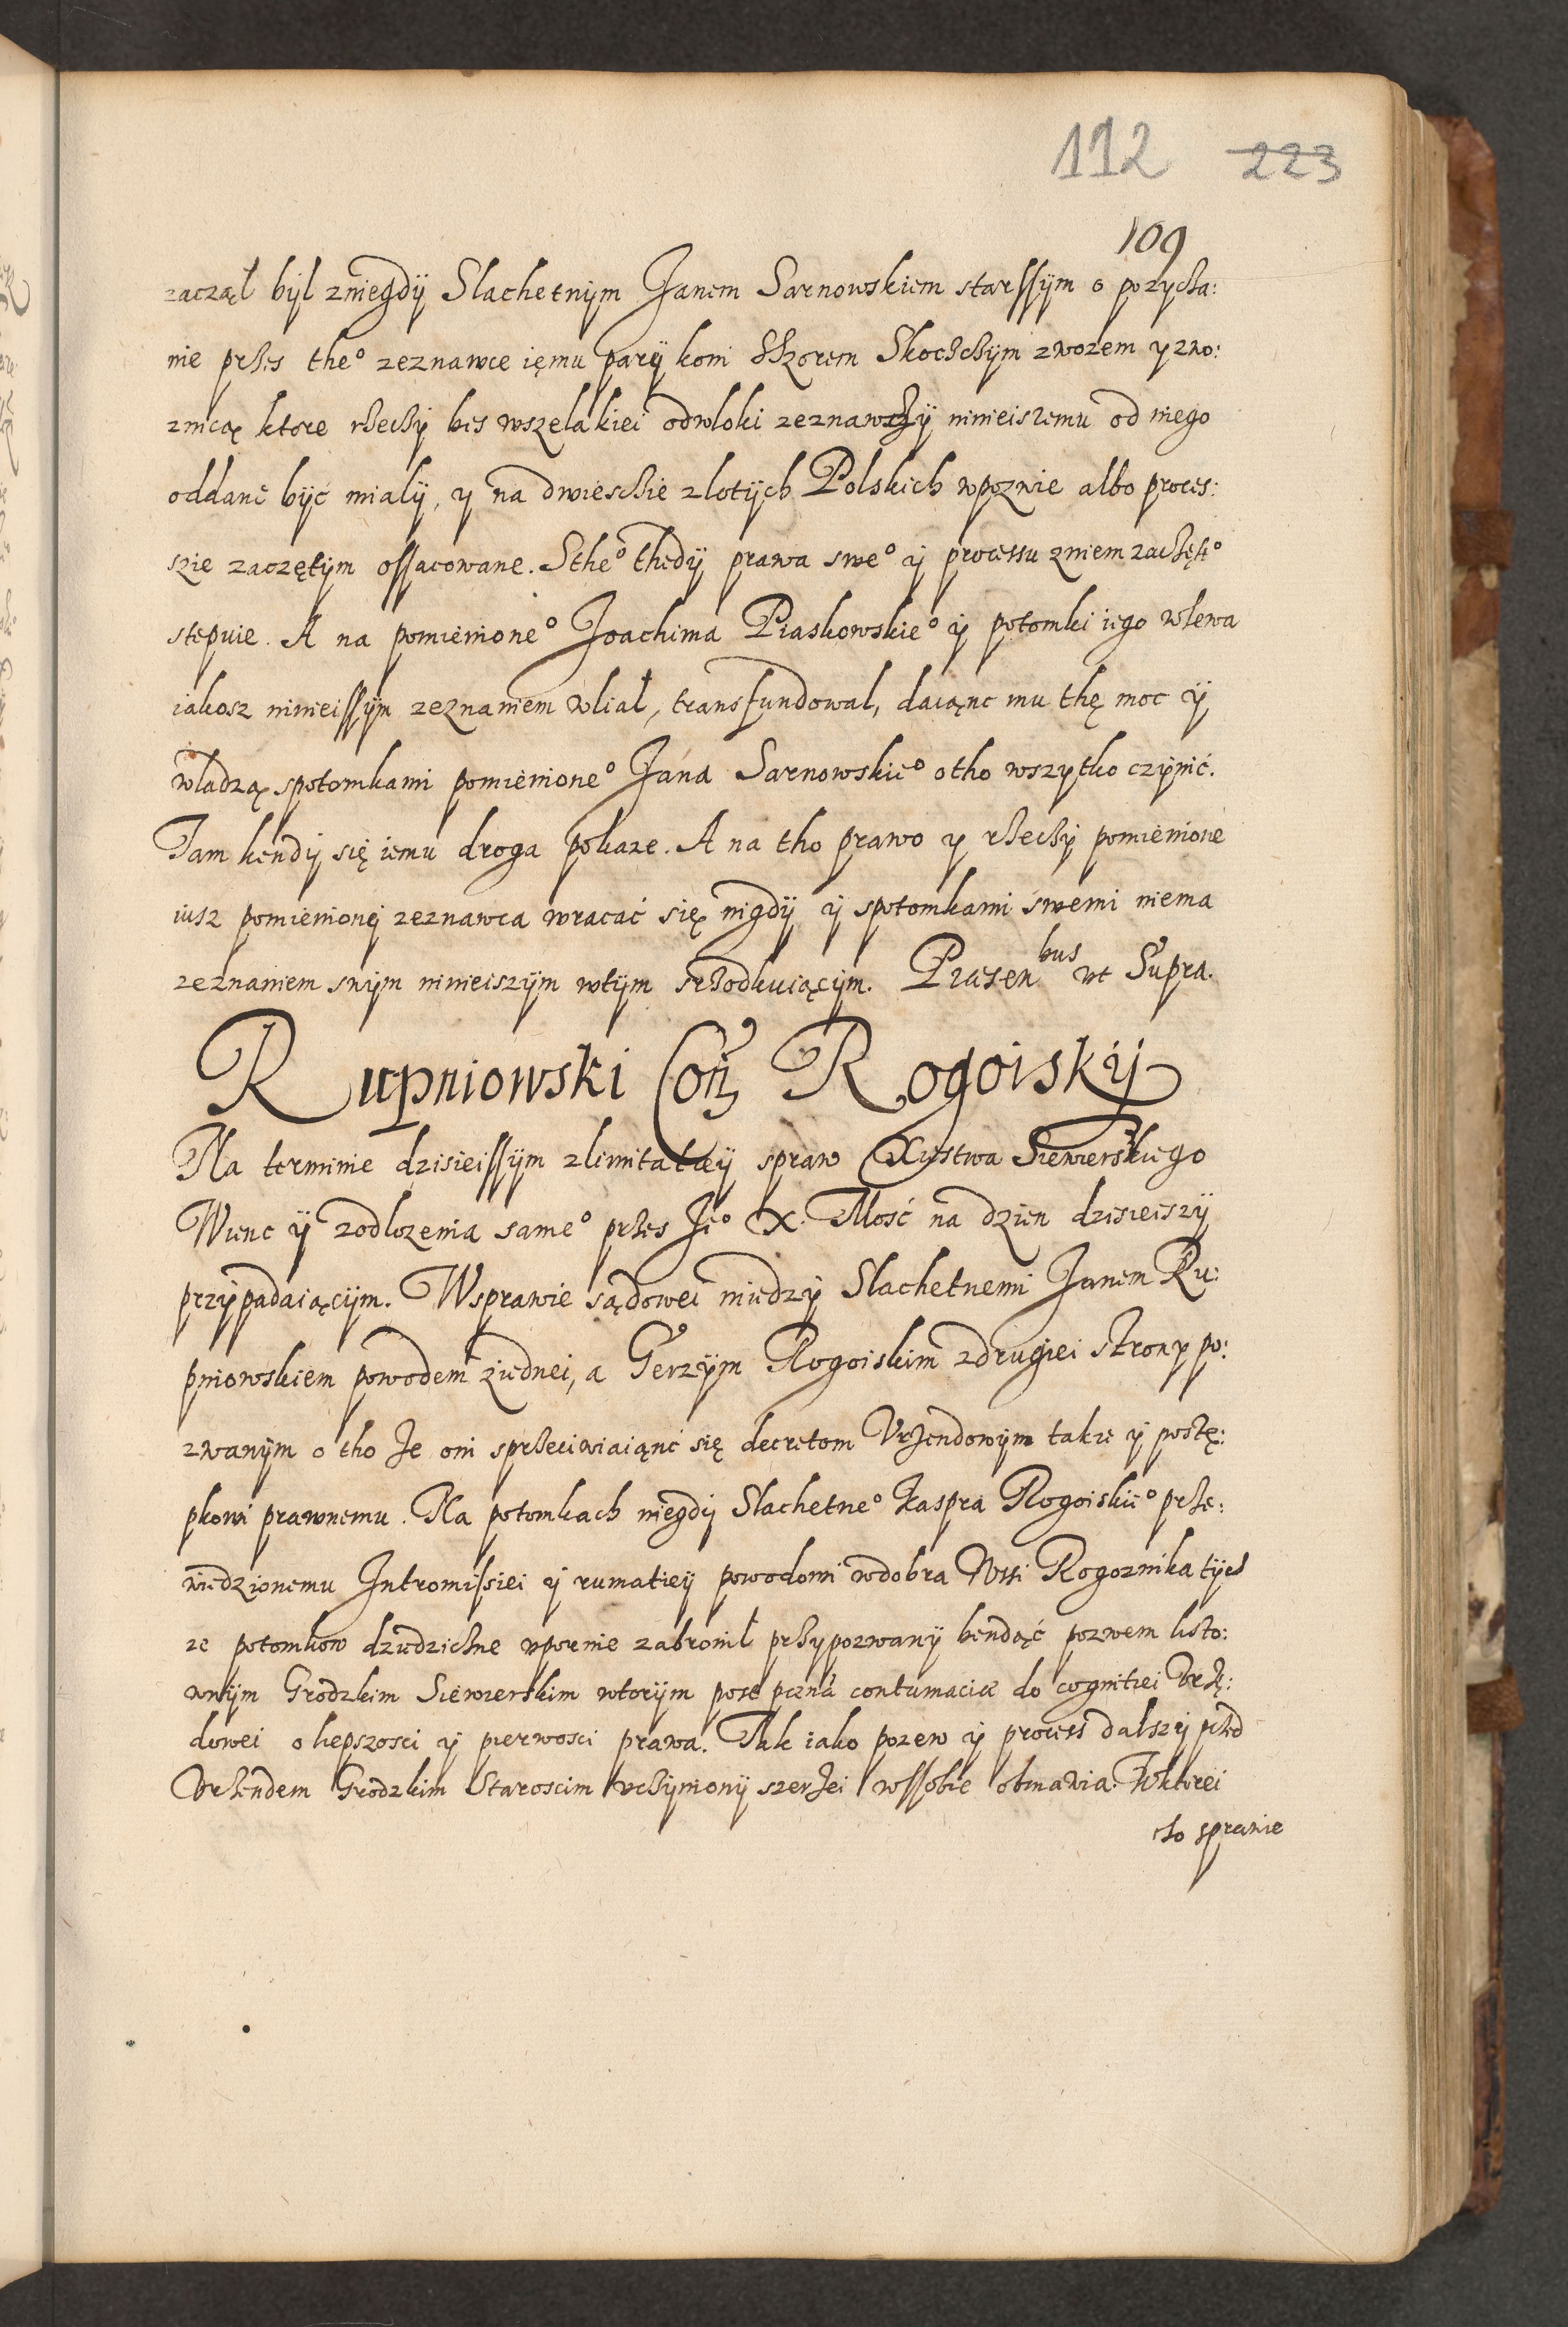 112 223
109
zaczął był zniegdÿ Slachetnÿm Janem Sarnowskiem starssÿm o pozycża:
nie przes the° zeznawce ięmu parÿ koni Skochzÿm zwozem y zwo:
znicą ktore rzeczÿ bes wszelakiei odwloki zeznawczÿ ninieiszemu od niego
oddane bÿć mialÿ, y na dwieschie zlotÿch Polskich wpozwie albo proces:
szie zaczętÿm ossacowane. Sthe° thedÿ prawa swe° ÿ processu zniem zachęte°
stepuie. A na pomienione° Joachima Piaskowskie° ÿ potomki iego wlewa
iakosz ninieissÿm zeznaniem wlial, transfundowal, daiąnc mu thę moc ÿ
władzą spotomkami pomienione° Jana Sarnowskie° otho wszytko czÿnić.
Tam kendÿ się iemu droga pokaze. A na tho prawo y rzeczÿ pomienione
iusz pomienionÿ zeznawca wracać się nigdÿ ÿ spotomkami swemi niema
zeznaniem swÿm ninieiszÿm wtÿm srzodkuiącÿm. Præsen^bus ut Supra.
Rupniowski Con̄ Rogoiskÿ
Na terminie dzisieissÿm zlimitatieÿ spraw Xięstwa Siewierskiego
Wienc ÿ zodlozenia same° przes Je° X. Mość na dzien dzisieiszÿ
przÿpadaiącÿm. Wsprawie sądowei miedzÿ Slachetnemi Janem Ru:
pniowskiem powodem ziednei, a Gerzÿm Rogoiskim zdrugiei strony po:
zwanÿm o tho Je oni sprzeciwiaiąnć się decretom Vrzendowÿm takze ÿ postę:
pkowi prawnemu. Na potomkach niegdÿ Slachetne° Kaspra Rogoiskie° prze:
wiedzionemu Intromissiei ÿ rumatieÿ powodowi wdobra Wssi Rogoznika tÿch
ze potomkow dziedziczne upornie zabronił przypozwanÿ bendąć pozwem listo:
wnÿm Grodzkim Siewierskim wtorÿm post pœna contumaciæ do cognitiei Vrzę:
dowei o liepszosci ÿ pierwosci prawa. Tak iako pozew ÿ process dalszÿ przed
Vrzendem Grodzkim Staroscim uczÿnionÿ szerzei wssobie obmawia. Wktorei
to sprawie